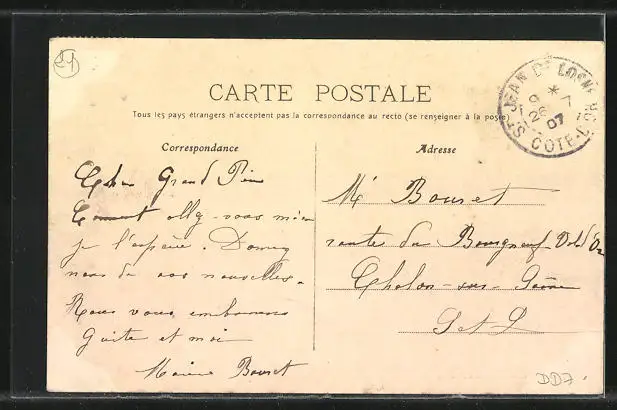 21
CARTE POSTALE
Tous les pays étrangers n'acceptent pas la correspondance au recto (se renseigner à la poste)
ST JEAN DE LOSNE
9 *
26 - 7
07
COTE-D'OR
Correspondance
Cher Grand Père
Comment allez-vous mieux
je l'espère. Donnez
nous de vos nouvelles.
Nous vous embrassons
Guite et moi
Bouret
Adresse
Mr Bouret
route du Bourgneuf Val d'Or
Chalon-sur-Saône
S et L
DD7